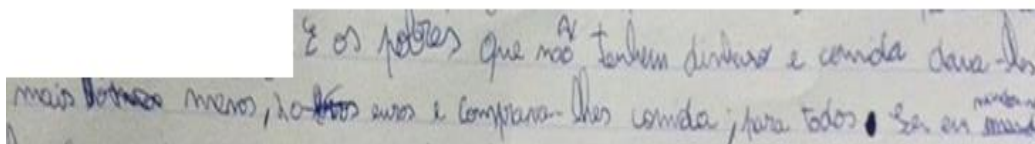 E os pobres que não tenhem dinheiro e comida dava-lhes
mais menos, 20 euros e comprava-lhes comida; para todos. Se eu